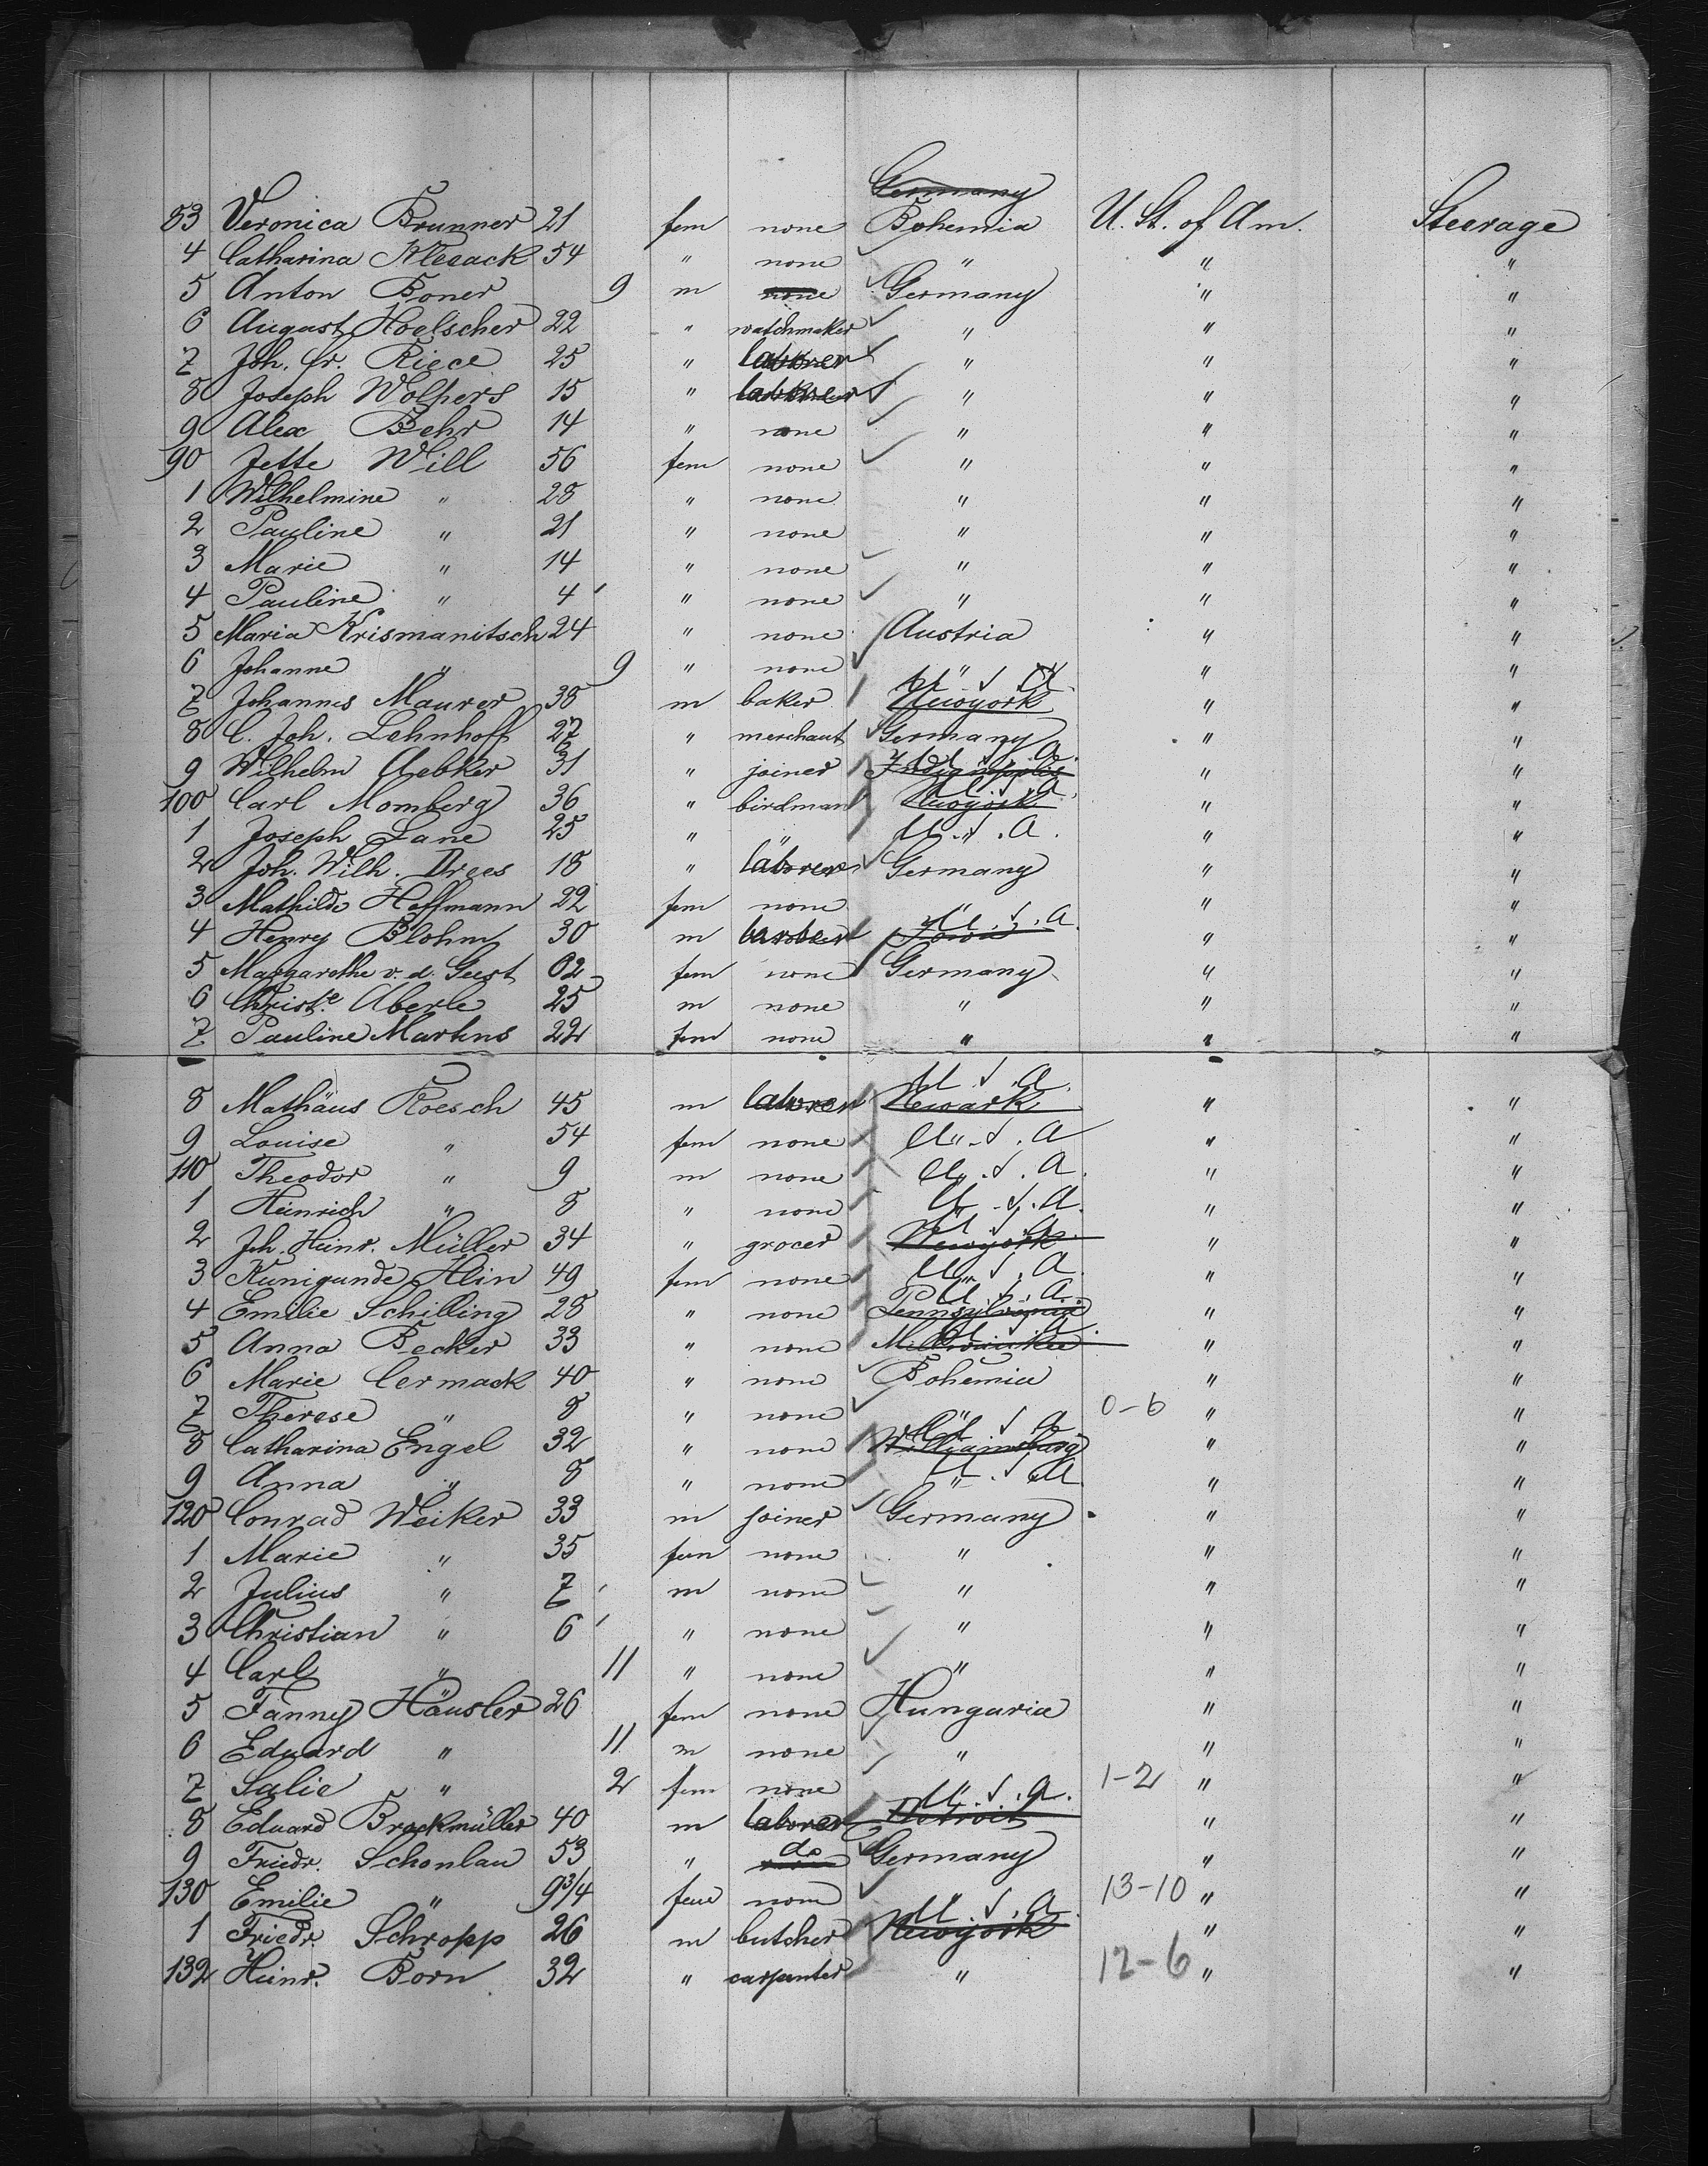 Germany
83 Veronica Brunner 21 fem none Bohemia U. St. of Am. Steerage
4 Catharina Klesack 54 " none " " "
5 Anton Boner 9 m none Germany " "
6 August Hoelscher 22 " watchmaker " " "
7 Joh. Fr. Riece 25 " laborer " " "
8 Joseph Wolpers 15 " " " "
9 Alex Behr 14 " none " " "
90 Jette Will 56 fem none " " "
1 Wilhelmine " 28 " none " " "
2 Pauline " 21 " none " " "
3 Marie " 14 " none " " "
4 Pauline " 4 " none " " "
5 Maria Krismanitsch 24 " none Austria " "
6 Johanne " 9 " none " " "
7 Johannes Maurer 38 m baker Newyork U.S.A. " "
8 C. Joh. Lehnhoff 27 " merchant Germany " "
9 Wilhelm Uebker 31 " joiner Indianapolis U.S.A. " "
100 Carl Momberg 36 " birdman Newyork U.S.A. " "
1 Joseph Lane 25 " " " U.S.A. " "
2 Joh. Wilh. Drees 18 " laborer Germany " "
3 Mathilde Hoffmann 22 fem none " " "
4 Henry Blohm 30 m barber Iowa U.S.A. " "
5 Margarethe v. d. Geest 62 fem none Germany " "
6 Christe. Aberle 25 m none " " "
7 Pauline Martens 22 fem none " " "
8 Mathäus Roesch 45 m laborer Newark U.S.A. " "
9 Louise " 54 fem none " U.S.A " "
110 Theodor " 9 m none " U.S.A. " "
1 Heinrich " 8 " none U.S.A. " "
2 Joh. Heinr. Müller 34 " grocer Newyork U.S.A. " "
3 Kunigunde Hlin 49 fem none " U.S.A. " "
4 Emilie Schilling 28 " none Pennsylvania U.S.A. " "
5 Anna Becker 33 " none Milwaukee U.S.A. " "
6 Marie Cermack 40 " none Bohemia " "
7 Therese " 8 " none " 0-6 " "
8 Catharina Engel 32 " none Williamsburg U.S.A " "
9 Anna " 8 " none " U.S.A " "
120 Conrad Weiker 33 m joiner Germany " "
1 Marie " 35 fem none " " "
2 Julius " 7 m none " " "
3 Christian " 6 " none " " "
4 Carl " 11 " none " " "
5 Fanny Häusler 26 fem none Hungaria " "
6 Eduard " 11 m none " " "
7 Salie " 2 fem none " 1-2 " "
8 Eduard Brockmüller 40 m laborer Detroit U.S.A. " "
9 Friedr. Schonlau 53 " do Germany " "
130 Emilie " 9 3/4 fem none " 13-10 " "
1 Friedr. Schropp 26 m butcher Newyork U.S.A. " "
132 Heinr. Born 32 " carpenter " 12-6 " "